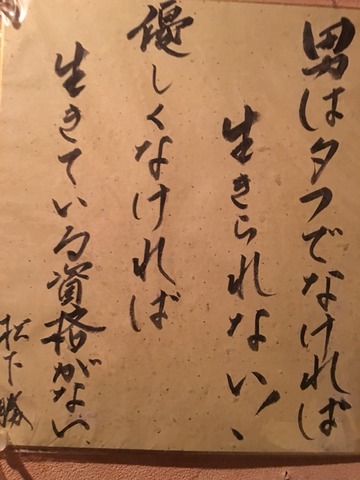 男はタフでなければ
生きられない!、
優しくなければ
生きている資格がない、
松下勝